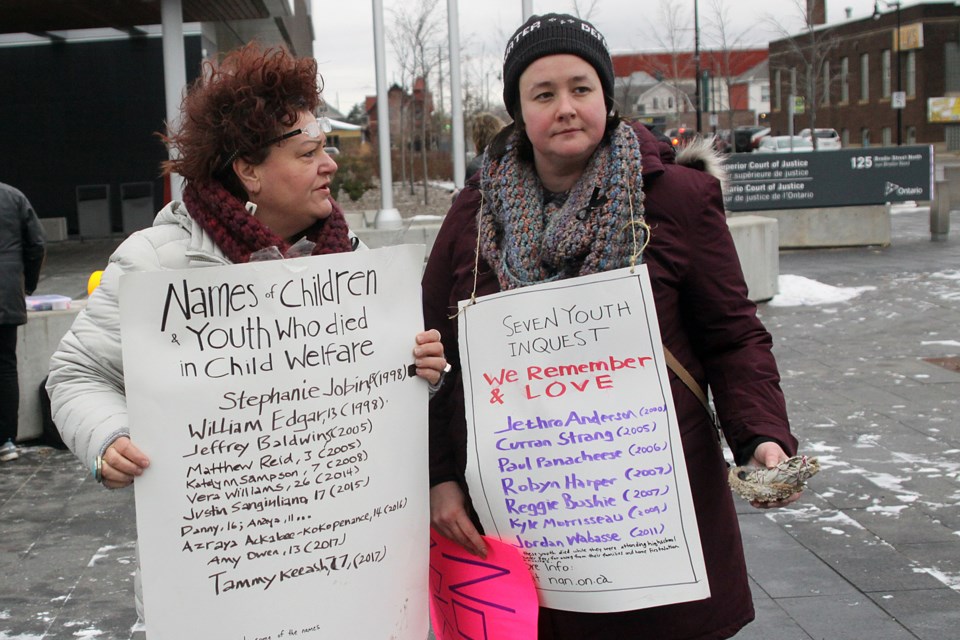 Names of Children
& Youth Who died
in Child Welfare
Stephanie Jobin, (1998)
William Edgar, 13 (1998)
Jeffrey Baldwin, 5 (2005)
Matthew Reid, 3 (2005)
Katelynn Sampson, 7 (2008)
Vera Williams, 26 (2014)
Justin Sangiuliano, 17 (2015)
Danny, 16; Anaya, 11...
Azraya Ackabee-Kokopenance, 14 (2016)
Amy Owen, 13 (2017)
Tammy Keeash, 17, (2017)
some of the names
SEVEN YOUTH
INQUEST
We Remember
& LOVE
Jethro Anderson (2000)
Curran Strang (2005)
Paul Panacheese (2006)
Robyn Harper (2007)
Reggie Bushie (2007)
Kyle Morrisseau (2009)
Jordan Wabasse (2011)
these youth died while they were attending highschool
far from their families and home
Info:
nan.on.ca
Superior Court of Justice
supérieure de justice
Ontario Court of Justice
de justice de l'Ontario
125 Brodie Street North
Ontario